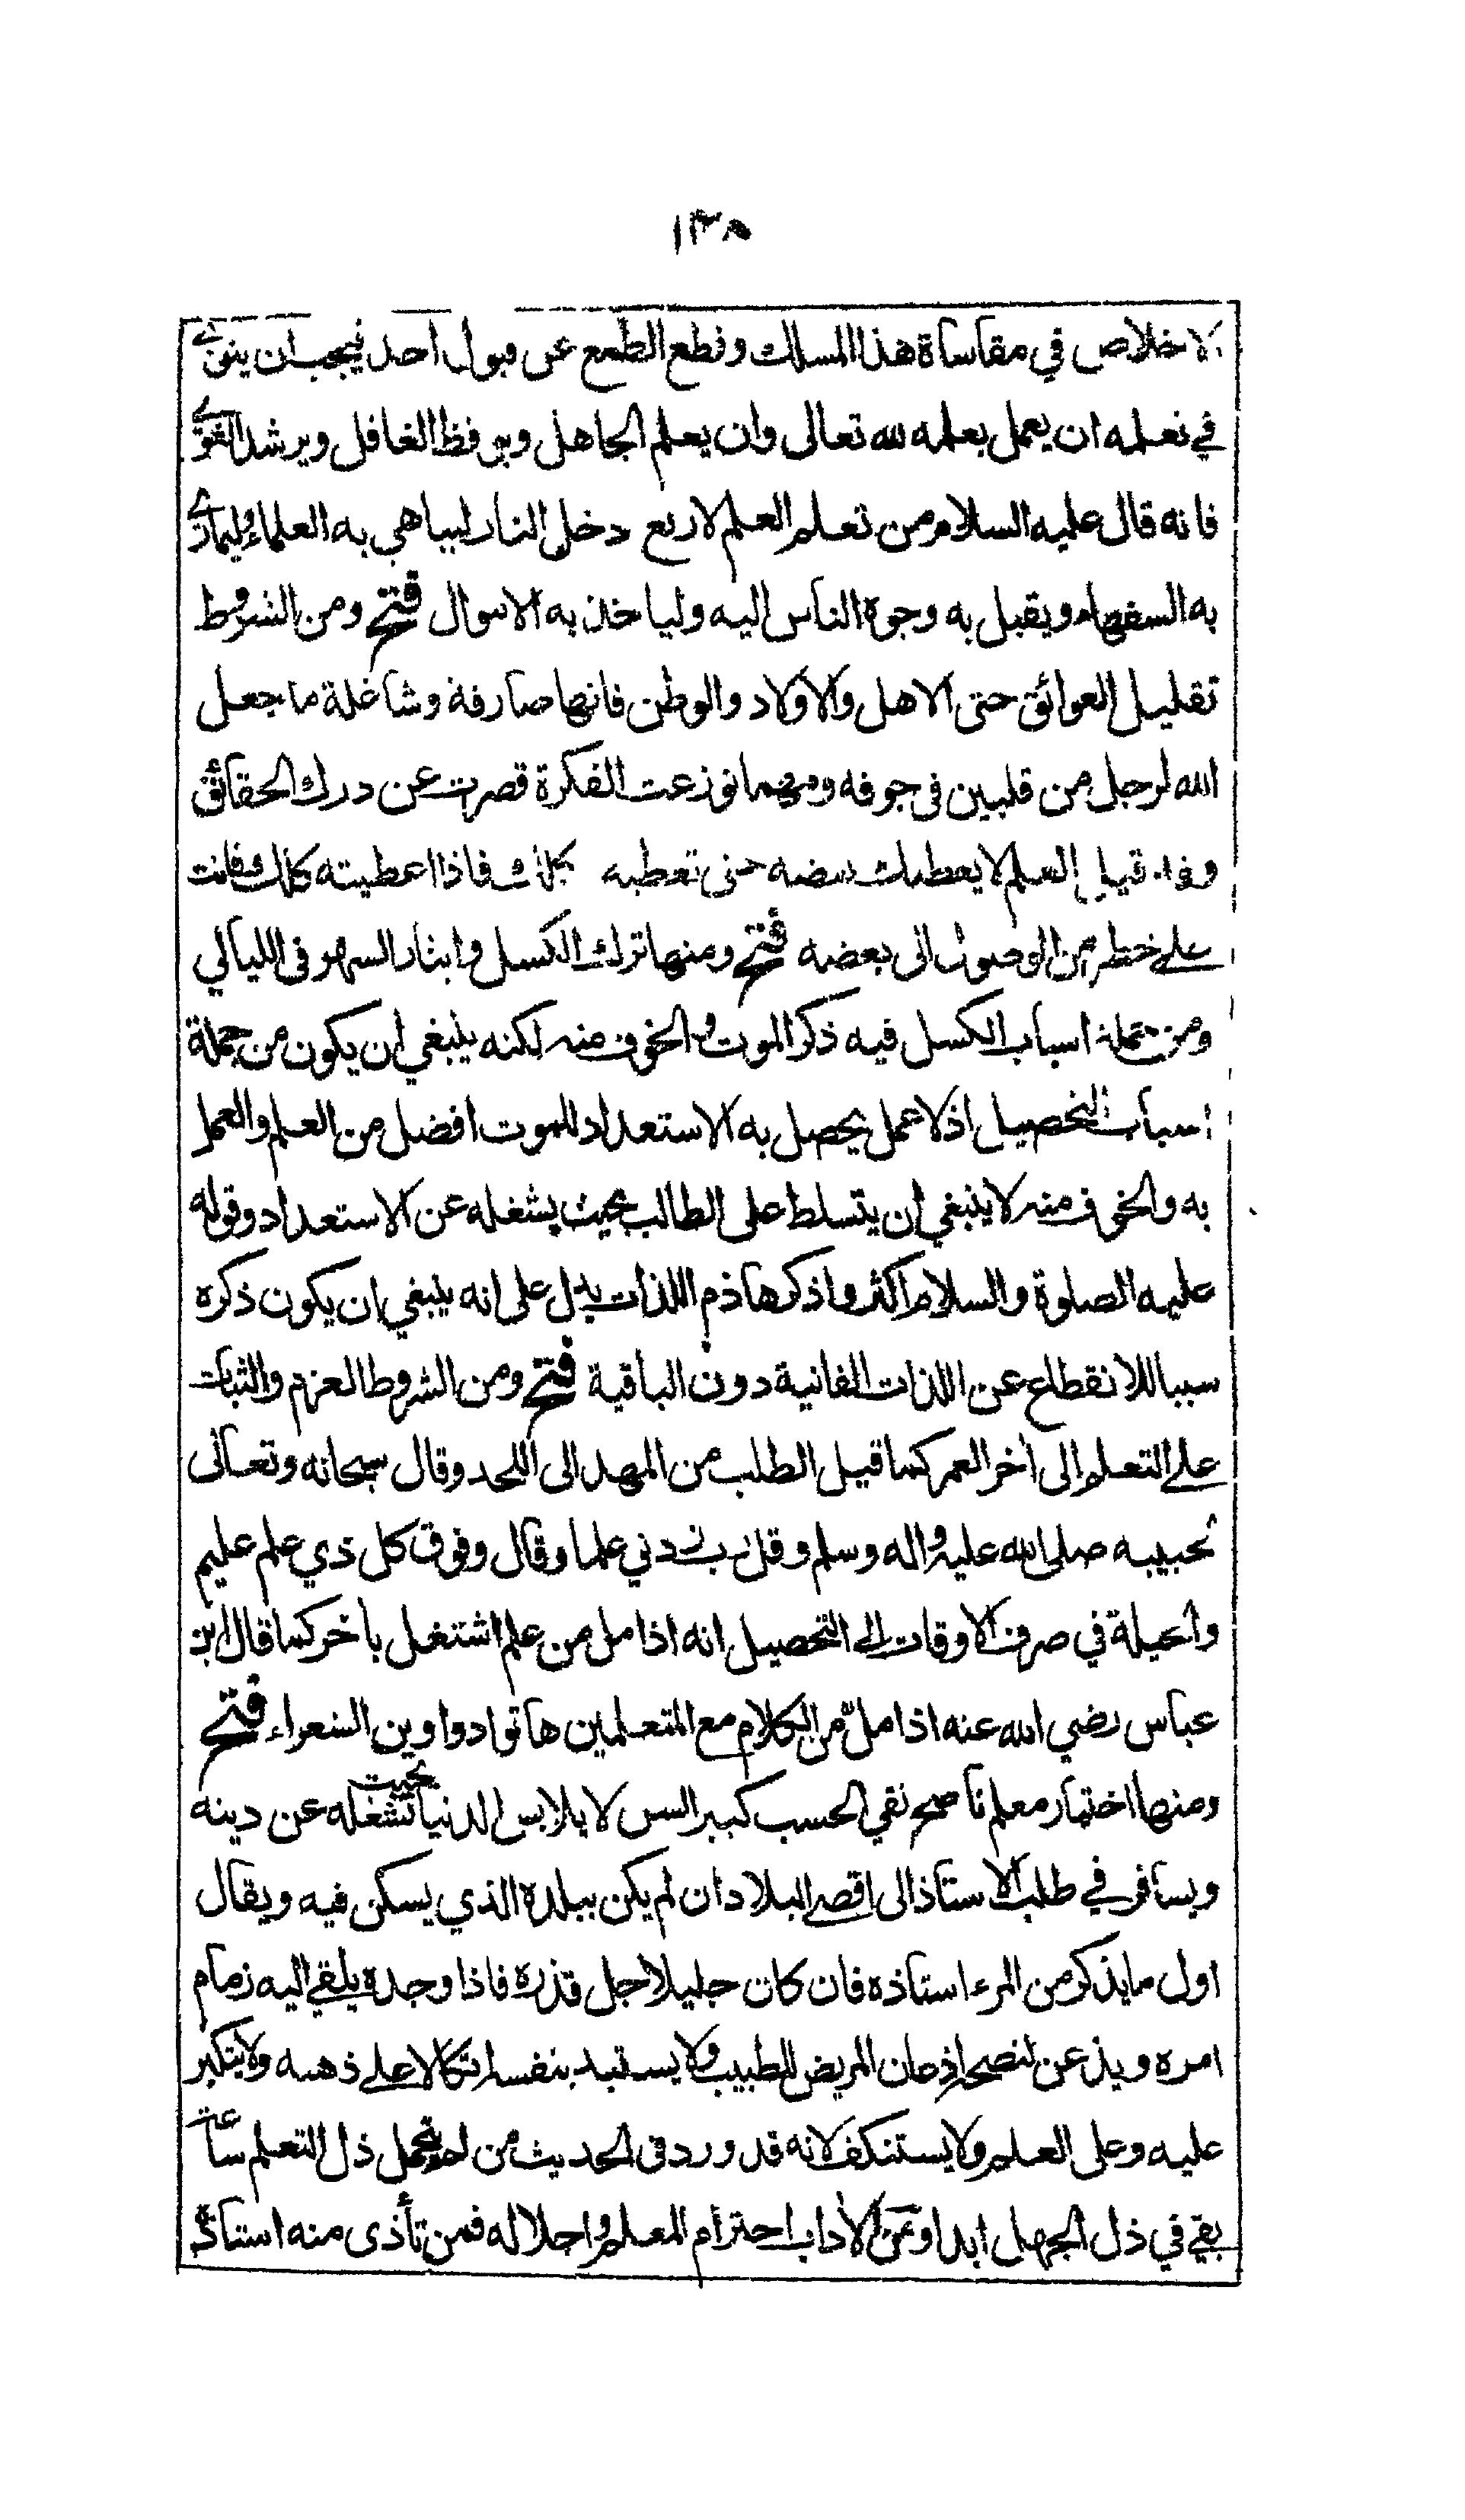 ١٣٨
الاخلاص في مقاساة هذا المسلك وقطع الطمع عن قبول احد فيجب ان ينوي
في تعلمه ان يعمل بعلمه لله تعالى وان يعلم الجاهل ويوقظ الغافل ويرشد الغوي
فانه قال عليه السلام من تعلم العلم لاربع دخل النار ليباهي به العلماء وليماري
به السفهاء ويقبل به وجوه الناس اليه ولياخذ به الاموال فتح ومن الشروط
تقليل العوائق حتى الاهل والاولاد والوطن فانها صارفة وشاغلة ما جعل
الله لرجل من قلبين في جوفه ومهما توزعت الفكرة قصرت عن درك الحقائق
وقد قيل العلم لا يعطيك بعضه حتى تعطيه كلك فاذا اعطيته كلك فانت
على خطر من الوصول الى بعضه فتح ومنها ترك الكسل وايثار السهر في الليالي
ومن جملة اسباب الكسل فيه ذكر الموت والخوف منه لكنه ينبغي ان يكون من جملة
اسباب التحصيل اذ لا عمل يحصل به الاستعداد للموت افضل من العلم والعمل
به والخوف منه لا ينبغي ان يتسلط على الطالب بحيث يشغله عن الاستعداد وقوله
عليه الصلوة والسلام اكثروا ذكر هاذم اللذات يدل على انه ينبغي ان يكون ذكره
سببا للانقطاع عن اللذات الفانية دون الباقية فتح ومن الشروط العزم والثبات
على التعلم الى أخر العمر كما قيل الطلب من المهد الى اللحد وقال سبحانه وتعالى
لحبيبه صلى الله عليه واله وسلم وقل رب زدني علما وقال وفوق كل ذي علم عليم
والحيلة في صرف الاوقات الى التحصيل انه اذا مل من علم اشتغل بأخر كما قال ابن
عباس رضي الله عنه اذا ملّ من الكلام مع المتعلمين هاتوا دواوين الشعراء فتح
ومنها اختيار معلم ناصح نقي الحسب كبير السن لا يلابس الدنيا بحيث تشغله عن دينه
ويسافر في طلب الاستاذ الى اقصى البلاد ان لم يكن ببلده الذي يسكن فيه ويقال
اول ما يذكر من المرء استاذه فان كان جليلا جل قدره فاذا وجده يلقي اليه زمام
امره ويذعن لنصحه اذعان المريض للطبيب ولا يستبد بنفسه اتكالا على ذهنه ولا يتكبر
عليه وعلى العلم ولا يستنكف لانه قد ورد في الحديث من لم يتحمل ذل التعلم ساعة
بقي في ذل الجهل ابدا ومن الأداب احترام المعلم واجلاله فمن تأذى منه استاذه